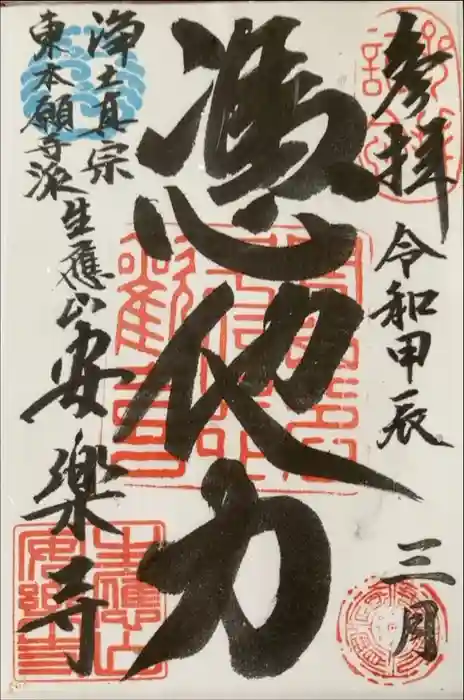 参拝
令和甲辰
三月
憑他力
浄土真宗
東本願寺派
生應山安樂寺